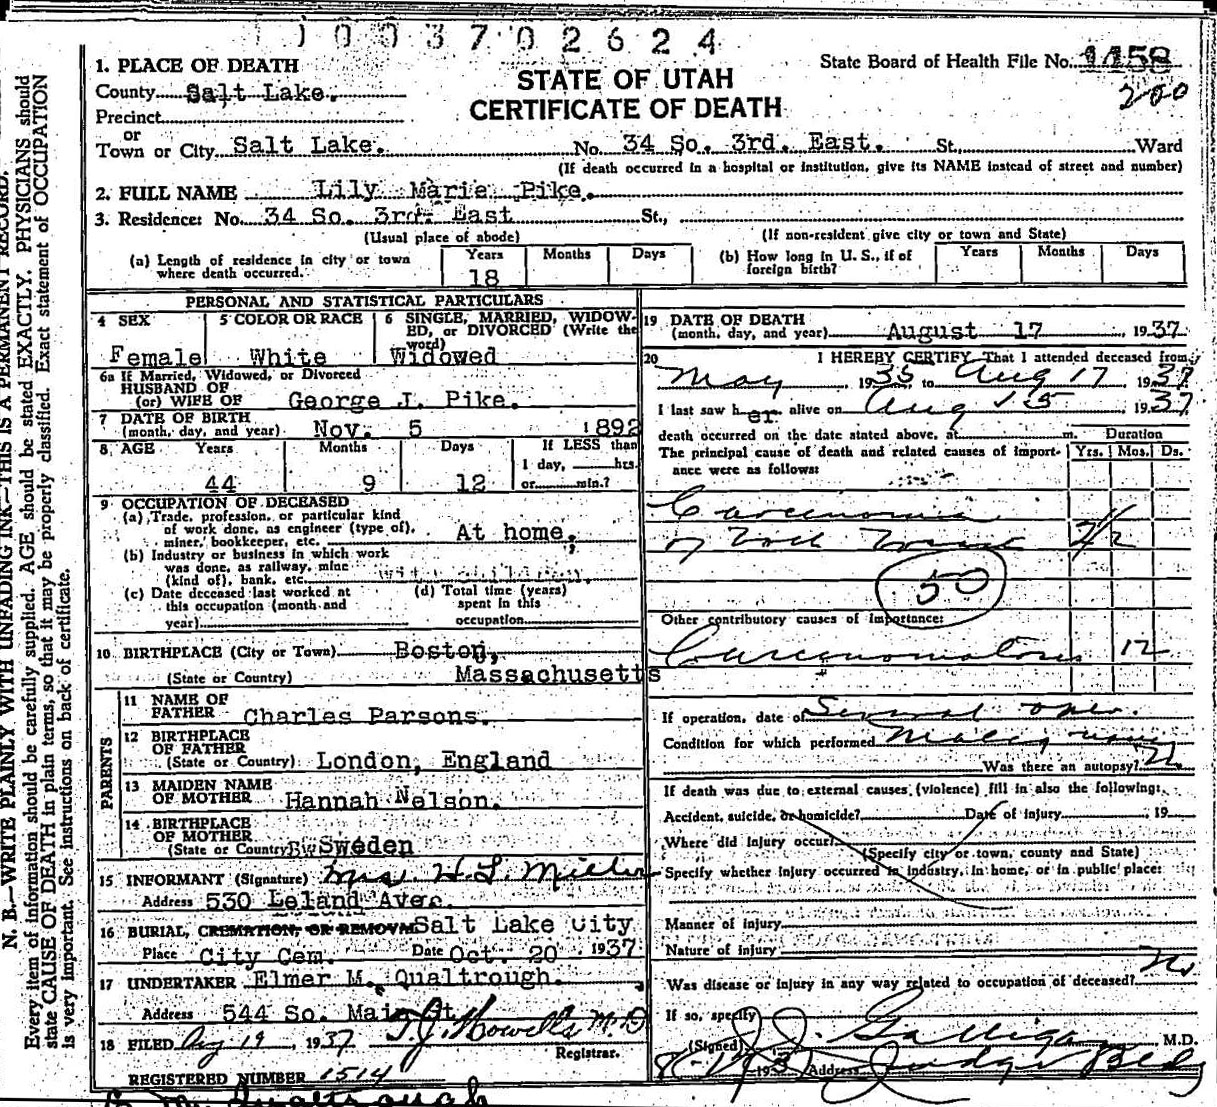 1003702624
State Board of Health File No. 1158
200
STATE OF UTAH
CERTIFICATE OF DEATH
1. PLACE OF DEATH
County Salt Lake.
Precinct
or
Town or City Salt Lake. No. 34 So. 3rd. East. St., Ward
(If death occurred in a hospital or institution, give its NAME instead of street and number)
2. FULL NAME Lily Marie Pike.
3. Residence: No. 34 So. 3rd. East St.,
(Usual place of abode) (If non-resident give city or town and State)
(a) Length of residence in city or town where death occurred. Years 18 Months Days
(b) How long in U. S., if of foreign birth? Years Months Days
PERSONAL AND STATISTICAL PARTICULARS
4 SEX Female
5 COLOR OR RACE White
6 SINGLE, MARRIED, WIDOWED, or DIVORCED (Write the word) Widowed
6a If Married, Widowed, or Divorced
HUSBAND OF
(or) WIFE OF George J. Pike.
7 DATE OF BIRTH
(month, day, and year) Nov. 5 1892
8 AGE Years 44 Months 9 Days 12
If LESS than
1 day, hrs.
or min.?
9 OCCUPATION OF DECEASED
(a) Trade, profession, or particular kind
of work done, as engineer (type of),
miner, bookkeeper, etc. At home;
(b) Industry or business in which work
was done, as railway, mine
(kind of), bank, etc. with children.
(c) Date deceased last worked at
this occupation (month and
year)
(d) Total time (years)
spent in this
occupation
10 BIRTHPLACE (City or Town) Boston,
(State or Country) Massachusetts
PARENTS
11 NAME OF
FATHER Charles Parsons.
12 BIRTHPLACE
OF FATHER
(State or Country) London, England
13 MAIDEN NAME
OF MOTHER Hannah Nelson.
14 BIRTHPLACE
OF MOTHER
(State or Country) Sweden
15 INFORMANT (Signature) Mrs. H. L. Miller
Address 530 Leland Ave.
16 BURIAL, CREMATION, OR REMOVAL Salt Lake City
Place City Cem. Date Oct. 20 1937
17 UNDERTAKER Elmer M. Qualtrough.
Address 544 So. Main St.
18 FILED Aug 19, 1937 T. J. Howells M.D.
Registrar.
REGISTERED NUMBER 1514
Qualtrough
19 DATE OF DEATH
(month, day, and year) August 17 1937
20 I HEREBY CERTIFY That I attended deceased from
May 1935 to Aug 17 1937
I last saw her alive on Aug 15 1937
death occurred on the date stated above, at m.
The principal cause of death and related causes of importance were as follows:
Duration
Yrs. Mos. Ds.
Carcinoma
of 2 1/2
50
Other contributory causes of importance:
Carcinomatosis 12
If operation, date of Several oper.
Condition for which performed
Was there an autopsy? N
If death was due to external causes (violence) fill in also the following:
Accident, suicide, or homicide? Date of injury 19
Where did injury occur?
(Specify city or town, county and State)
Specify whether injury occurred in industry, in home, or in public place:
Manner of injury
Nature of injury
Was disease or injury in any way related to occupation of deceased? No
If so, specify
(Signed) J. J. Galligan M.D.
8-17 1937 Address Judge Bldg
N. B.—WRITE PLAINLY WITH UNFADING INK—THIS IS A PERMANENT RECORD.
Every item of information should be carefully supplied. AGE should be stated EXACTLY. PHYSICIANS should
state CAUSE OF DEATH in plain terms, so that it may be properly classified. Exact statement of OCCUPATION
is very important. See instructions on back of certificate.